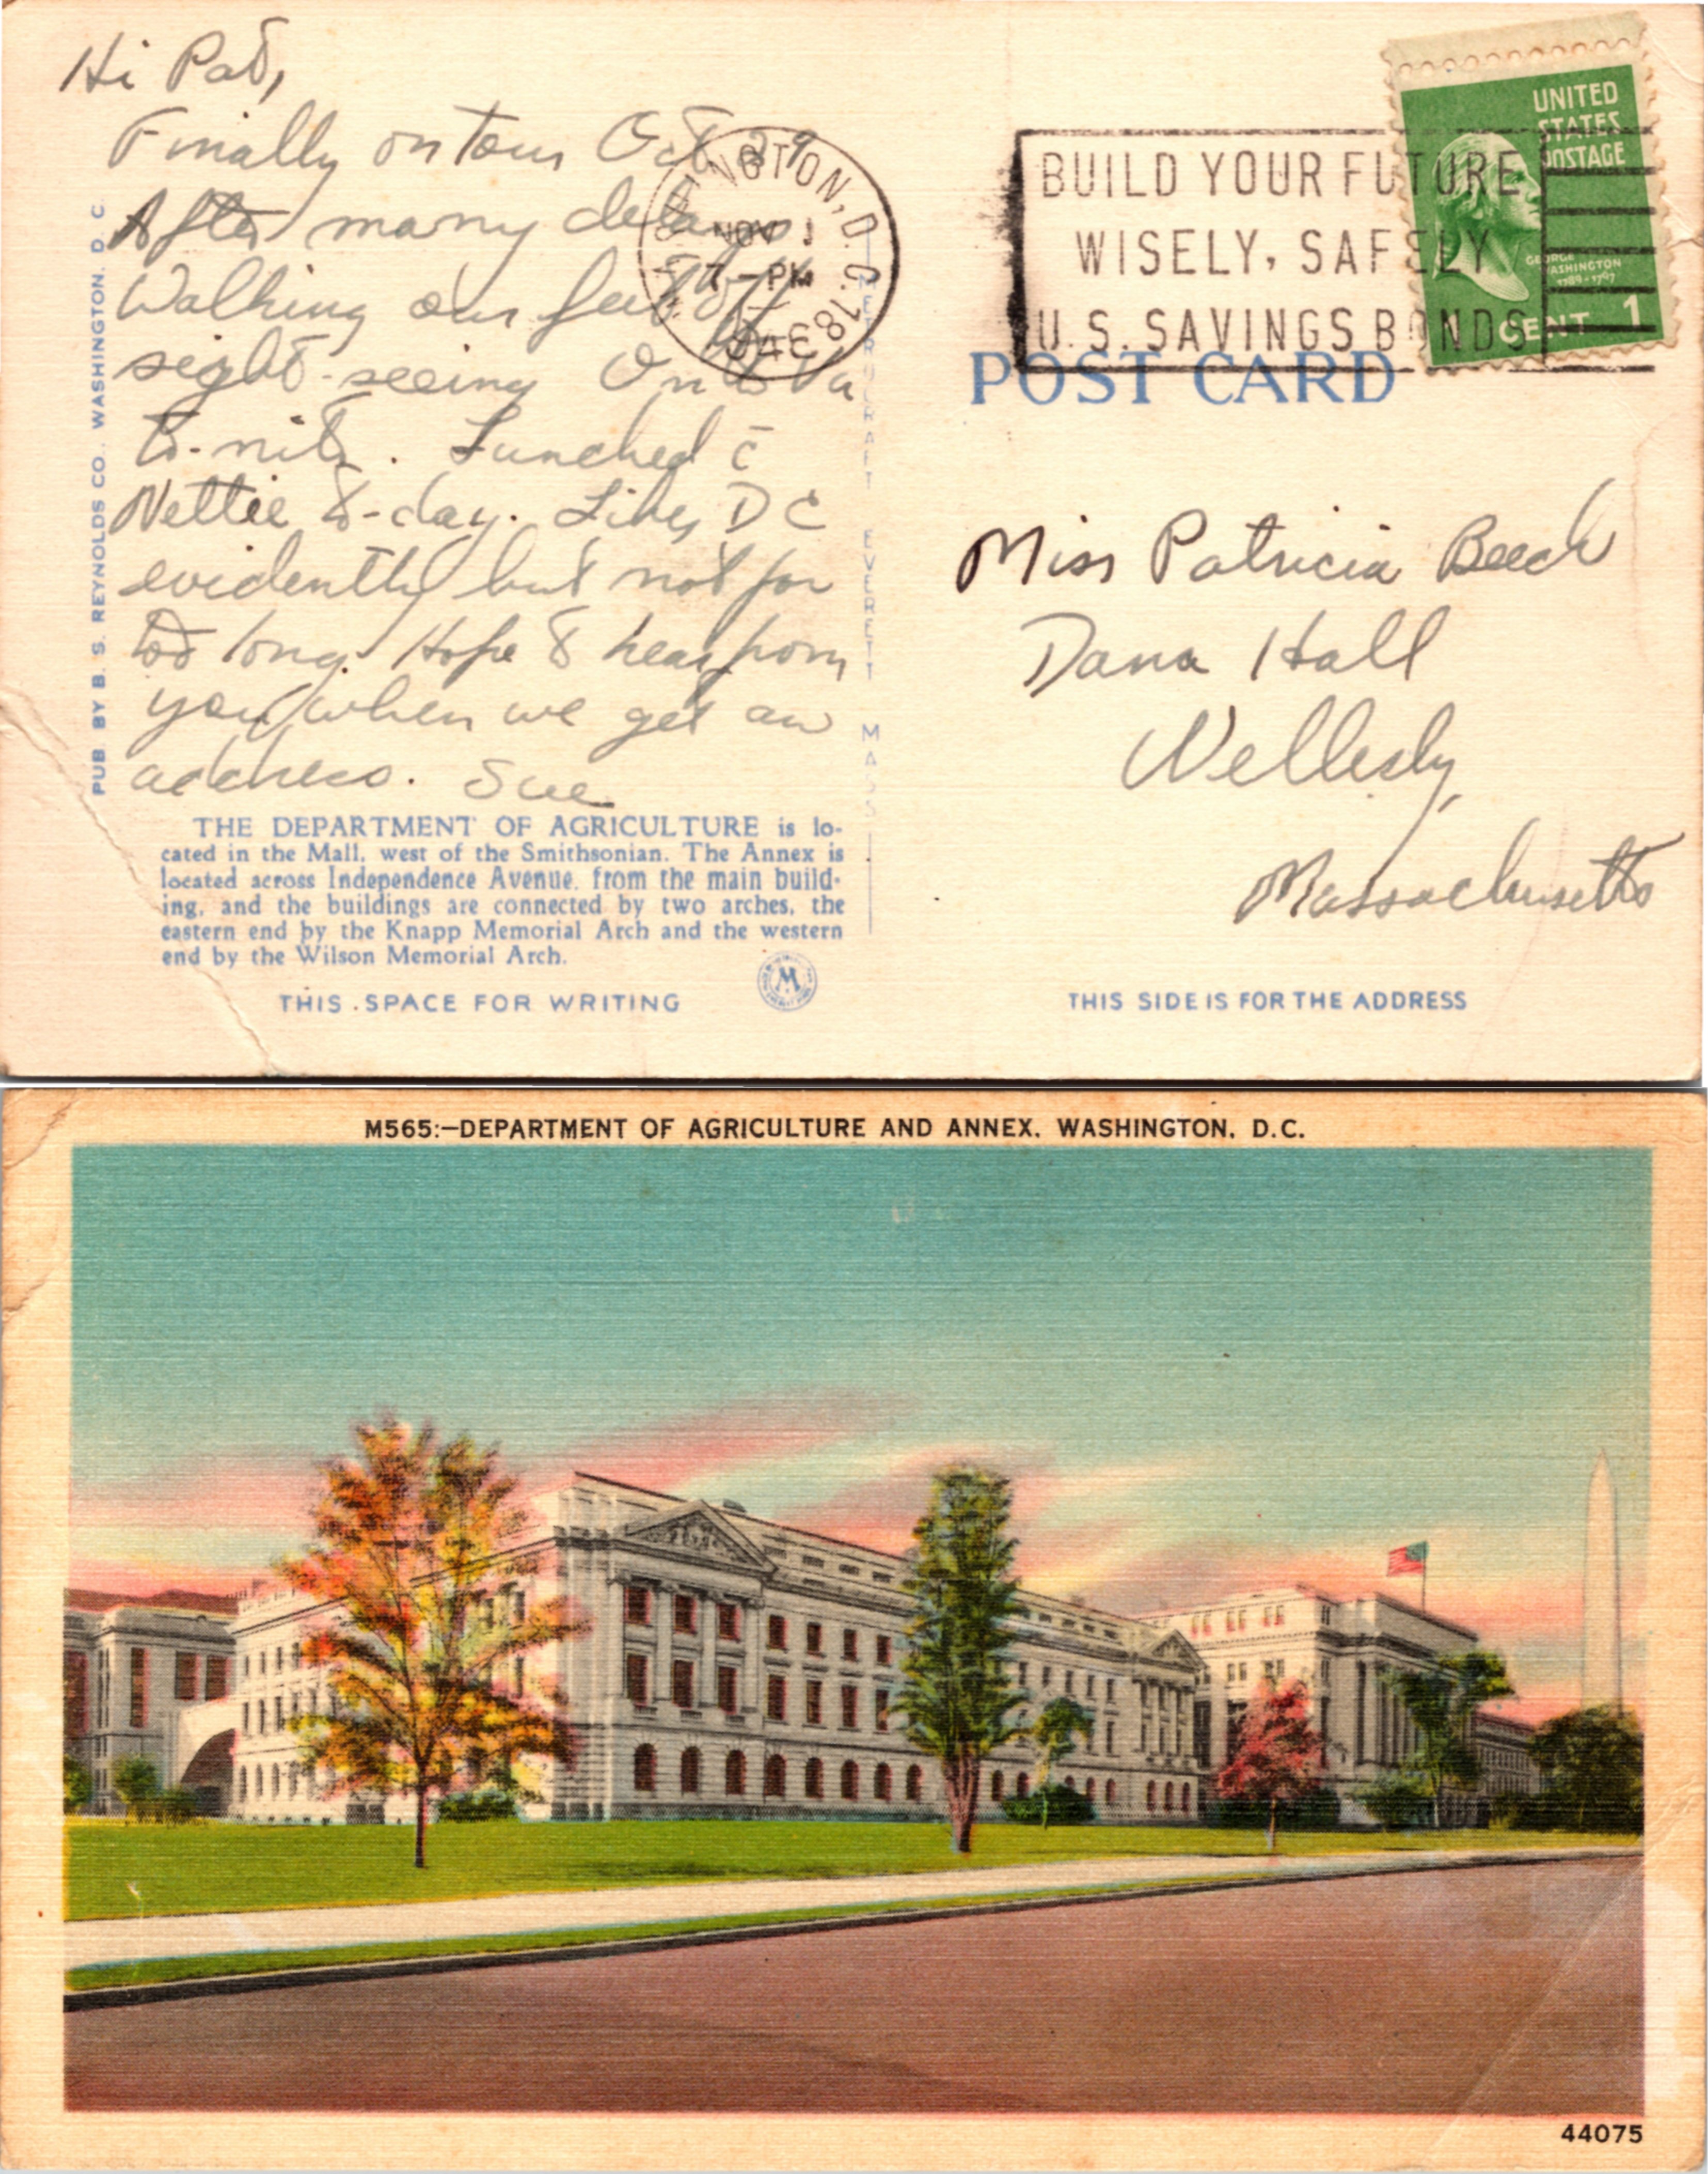 Hi Pat,
Finally on tour Oct 29
After many delays
Walking our feet off
sight-seeing On to Va
to-nite. Lunched c̄
Nettie to-day. Likes DC
evidently but not for
too long. Hope to hear from
you when we get an
address. Sue
PUB BY B. S. REYNOLDS CO., WASHINGTON, D. C.
THE DEPARTMENT OF AGRICULTURE is lo-
cated in the Mall, west of the Smithsonian. The Annex is
located across Independence Avenue, from the main build-
ing, and the buildings are connected by two arches, the
eastern end by the Knapp Memorial Arch and the western
end by the Wilson Memorial Arch.
THIS SPACE FOR WRITING
M
METROCRAFT EVERETT MASS
WASHINGTON, D.C. 18
NOV 1
7-PM
BUILD YOUR FUTURE
WISELY, SAFELY
U.S. SAVINGS BONDS
UNITED
STATES
POSTAGE
GEORGE
WASHINGTON
1789-1797
1 CENT 1
POST CARD
Miss Patricia Beech
Dana Hall
Wellesly,
Massachusetts
THIS SIDE IS FOR THE ADDRESS
M565:—DEPARTMENT OF AGRICULTURE AND ANNEX, WASHINGTON, D.C.
44075